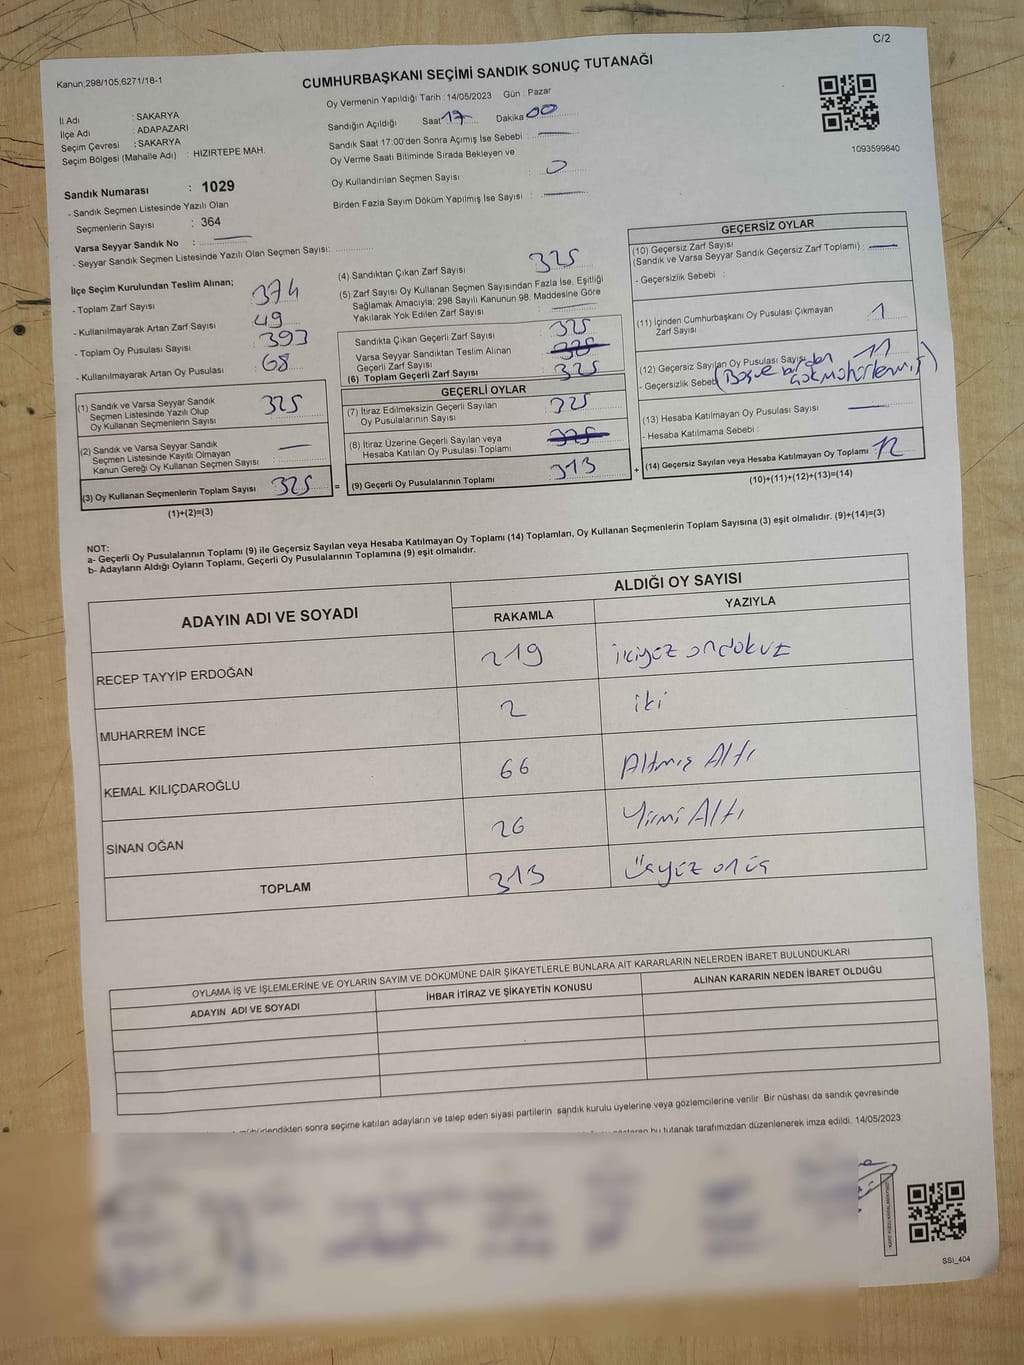 C/2
Kanun;298/105;6271/18-1
CUMHURBAŞKANI SEÇİMİ SANDIK SONUÇ TUTANAĞI
Oy Vermenin Yapıldığı Tarih : 14/05/2023 Gün : Pazar
İl Adı : SAKARYA
İlçe Adı : ADAPAZARI
Seçim Çevresi : SAKARYA
Seçim Bölgesi (Mahalle Adı) : HIZIRTEPE MAH.
Sandığın Açıldığı Saat 17 Dakika 00
Sandık Saat 17:00'den Sonra Açımış İse Sebebi :
Oy Verme Saati Bitiminde Sırada Bekleyen ve
Oy Kullandırılan Seçmen Sayısı : 0
Birden Fazla Sayım Döküm Yapılmış İse Sayısı :
1093599840
Sandık Numarası : 1029
- Sandık Seçmen Listesinde Yazılı Olan
Seçmenlerin Sayısı : 364
Varsa Seyyar Sandık No :
- Seyyar Sandık Seçmen Listesinde Yazılı Olan Seçmen Sayısı:
İlçe Seçim Kurulundan Teslim Alınan;
- Toplam Zarf Sayısı : 374
- Kullanılmayarak Artan Zarf Sayısı : 49
- Toplam Oy Pusulası Sayısı : 393
- Kullanılmayarak Artan Oy Pusulası : 68
(1) Sandık ve Varsa Seyyar Sandık
Seçmen Listesinde Yazılı Olup
Oy Kullanan Seçmenlerin Sayısı : 325
(2) Sandık ve Varsa Seyyar Sandık
Seçmen Listesinde Kayıtlı Olmayan
Kanun Gereği Oy Kullanan Seçmen Sayısı :
(3) Oy Kullanan Seçmenlerin Toplam Sayısı : 325
(1)+(2)=(3)
(4) Sandıktan Çıkan Zarf Sayısı : 325
(5) Zarf Sayısı Oy Kullanan Seçmen Sayısından Fazla İse, Eşitliği
Sağlamak Amacıyla; 298 Sayılı Kanunun 98. Maddesine Göre
Yakılarak Yok Edilen Zarf Sayısı :
Sandıkta Çıkan Geçerli Zarf Sayısı : 325
Varsa Seyyar Sandıktan Teslim Alınan
Geçerli Zarf Sayısı : 325
(6) Toplam Geçerli Zarf Sayısı : 325
GEÇERLİ OYLAR
(7) İtiraz Edilmeksizin Geçerli Sayılan
Oy Pusulalarının Sayısı : 325
(8) İtiraz Üzerine Geçerli Sayılan veya
Hesaba Katılan Oy Pusulası Toplamı : 325
= (9) Geçerli Oy Pusulalarının Toplamı : 313
GEÇERSİZ OYLAR
(10) Geçersiz Zarf Sayısı
(Sandık ve Varsa Seyyar Sandık Geçersiz Zarf Toplamı) :
- Geçersizlik Sebebi :
(11) İçinden Cumhurbaşkanı Oy Pusulası Çıkmayan
Zarf Sayısı : 1
(12) Geçersiz Sayılan Oy Pusulası Sayısı : 11
- Geçersizlik Sebebi
(13) Hesaba Katılmayan Oy Pusulası Sayısı :
- Hesaba Katılmama Sebebi :
+ (14) Geçersiz Sayılan veya Hesaba Katılmayan Oy Toplamı : 12
(10)+(11)+(12)+(13)=(14)
NOT:
a- Geçerli Oy Pusulalarının Toplamı (9) ile Geçersiz Sayılan veya Hesaba Katılmayan Oy Toplamı (14) Toplamları, Oy Kullanan Seçmenlerin Toplam Sayısına (3) eşit olmalıdır. (9)+(14)=(3)
b- Adayların Aldığı Oyların Toplamı, Geçerli Oy Pusulalarının Toplamına (9) eşit olmalıdır.
ADAYIN ADI VE SOYADI
ALDIĞI OY SAYISI
RAKAMLA YAZIYLA
RECEP TAYYİP ERDOĞAN 219 ikiyüz ondokuz
MUHARREM İNCE 2 iki
KEMAL KILIÇDAROĞLU 66 Altmış Altı
SİNAN OĞAN 26 Yirmi Altı
TOPLAM 313 Üçyüz onüç
OYLAMA İŞ VE İŞLEMLERİNE VE OYLARIN SAYIM VE DÖKÜMÜNE DAİR ŞİKAYETLERLE BUNLARA AİT KARARLARIN NELERDEN İBARET BULUNDUKLARI
ADAYIN ADI VE SOYADI İHBAR İTİRAZ VE ŞİKAYETİN KONUSU ALINAN KARARIN NEDEN İBARET OLDUĞU
mühürlendikten sonra seçime katılan adayların ve talep eden siyasi partilerin sandık kurulu üyelerine veya gözlemcilerine verilir. Bir nüshası da sandık çevresinde
bu tutanak tarafımızdan düzenlenerek imza edildi. 14/05/2023
SSİ_404